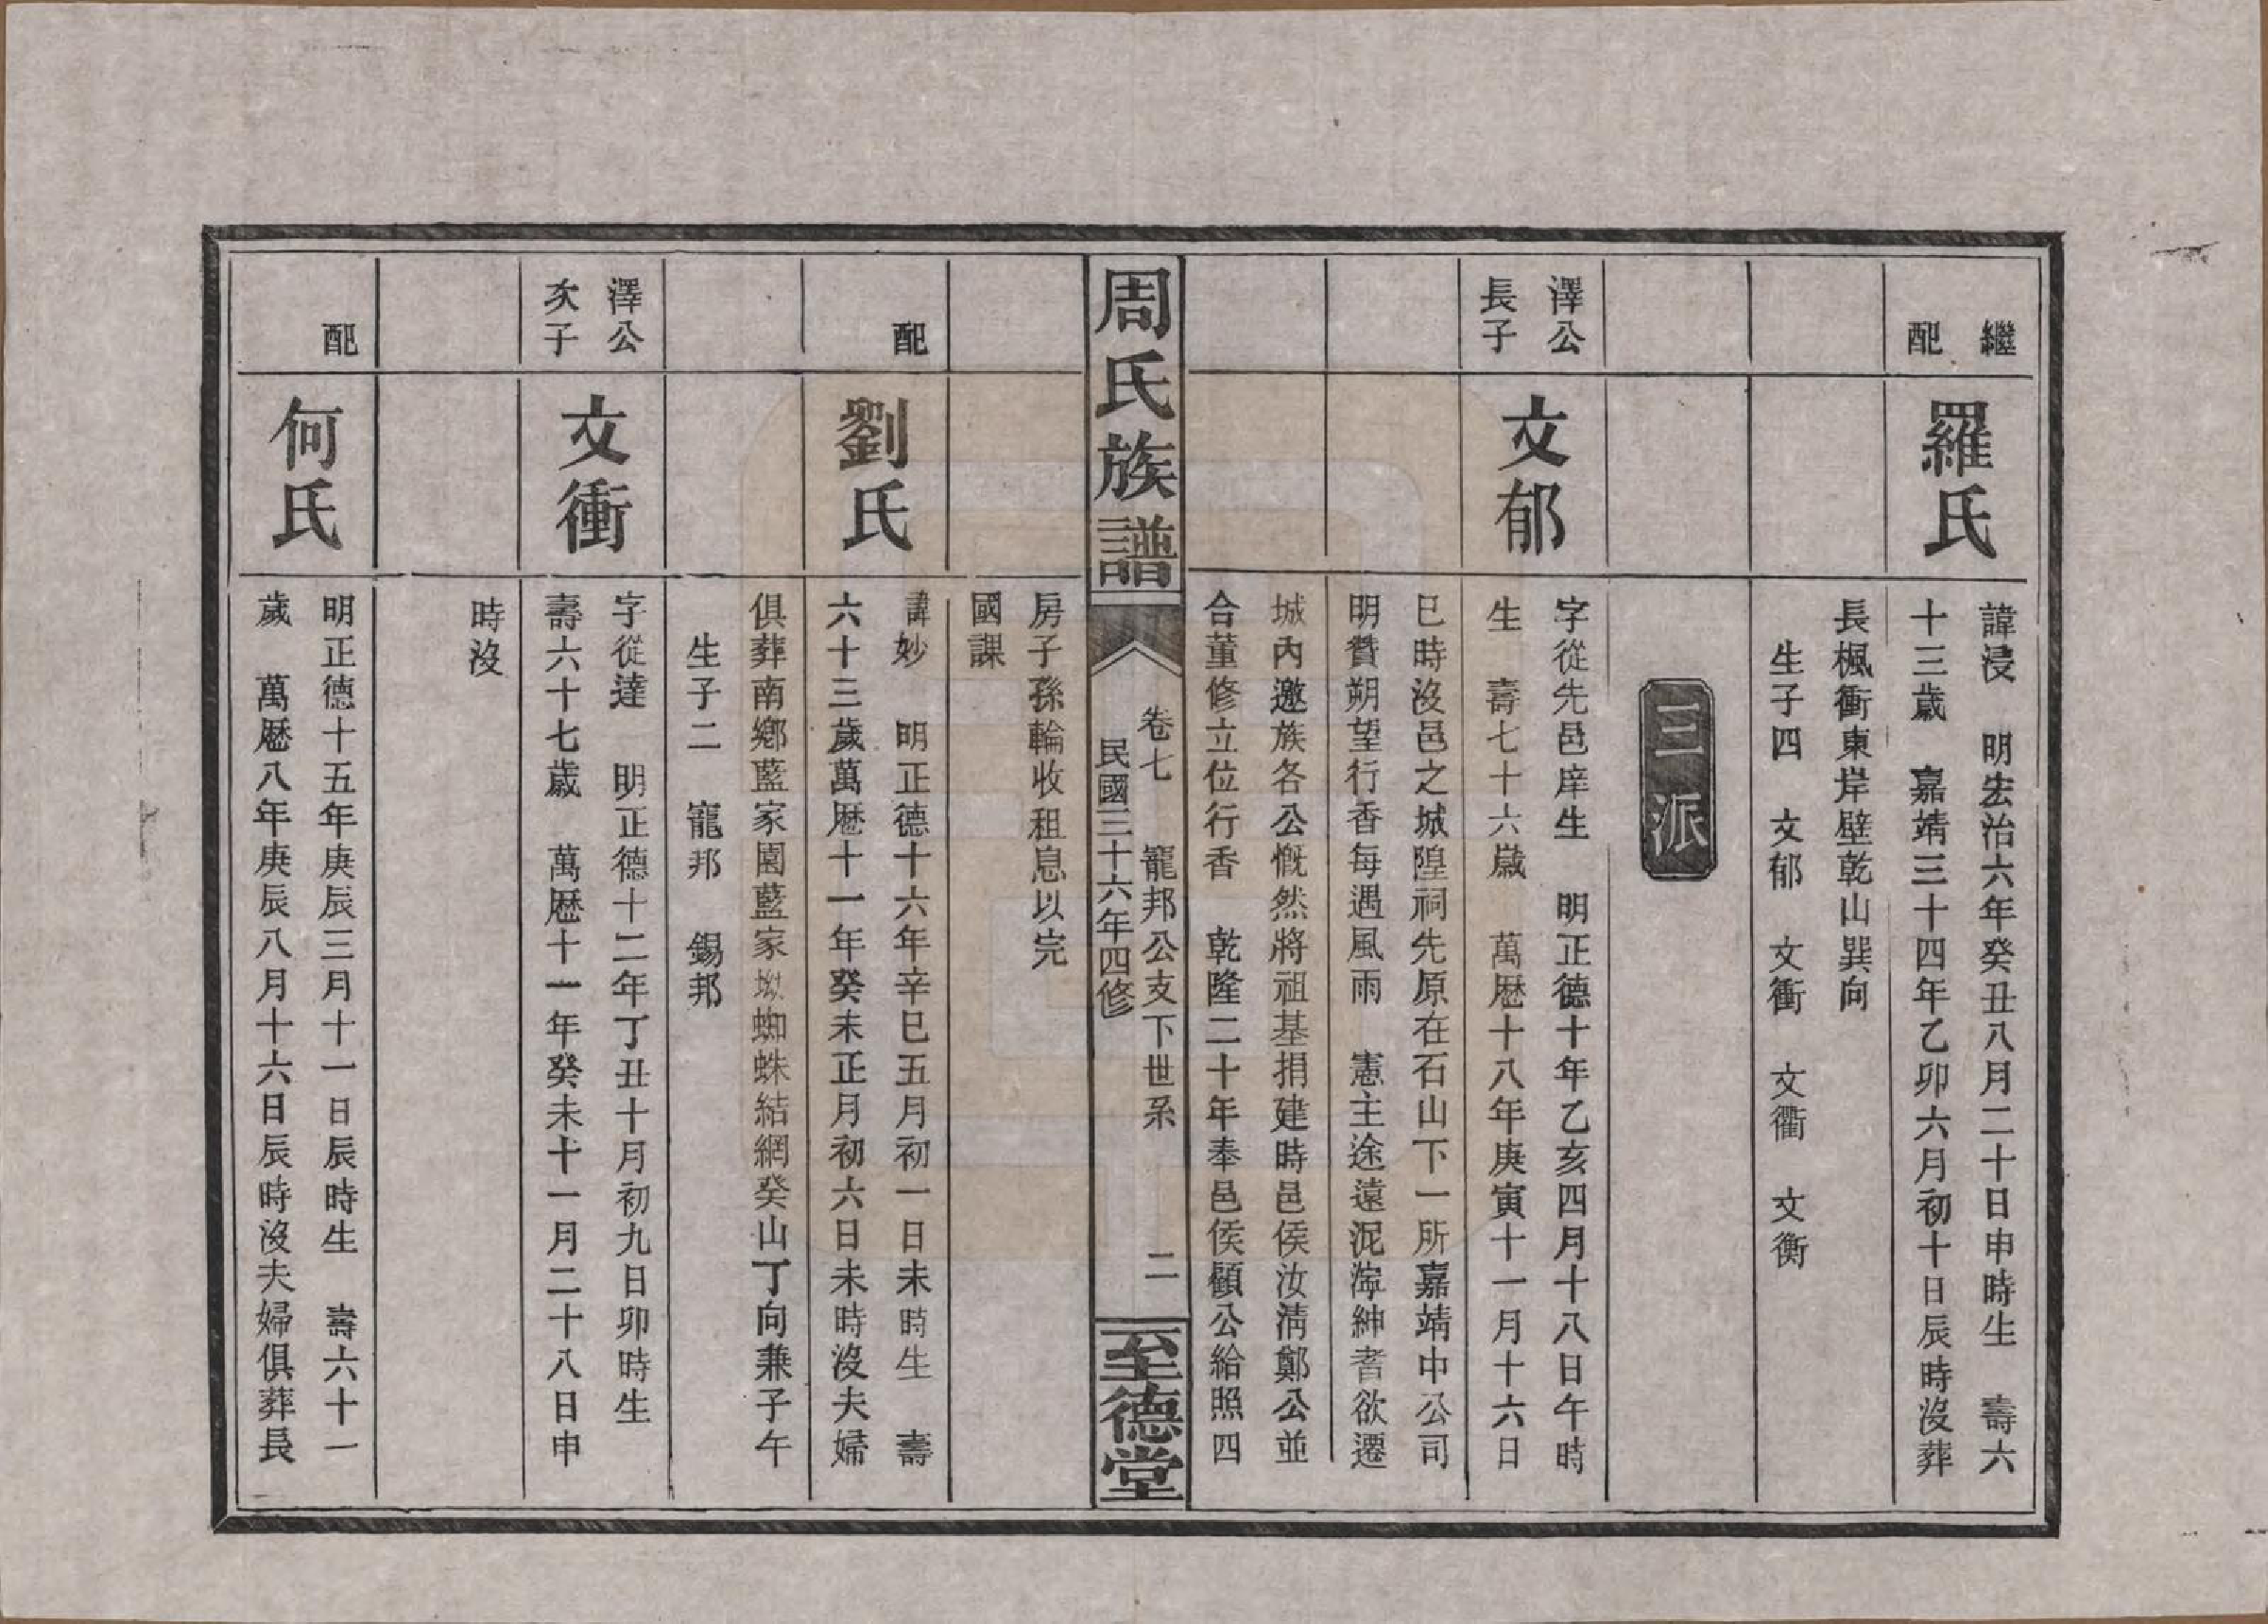 繼
配
羅氏
諱浸　明宏治六年癸丑八月二十日申時生　壽六
十三歲　嘉靖三十四年乙卯六月初十日辰時沒葬
長楓衝東岸壁乾山巽向
生子四　文郁　文衝　文衢　文衡
三派
澤公
長子
文郁
字從先邑庠生　明正德十年乙亥四月十八日午時
生　壽七十六歲　萬歷十八年庚寅十一月十六日
巳時沒邑之城隍祠先原在石山下一所嘉靖中公司
明贊朔望行香每遇風雨　憲主途遠泥濘紳耆欲遷
城內邀族各公慨然將祖基捐建時邑侯汝清鄭公並
合董修立位行香　乾隆二十年奉邑侯顧公給照四
周氏族譜
卷七　寵邦公支下世系　二
民國三十六年四修
至德堂
房子孫輪收租息以完
國課
配
劉氏
諱妙　明正德十六年辛巳五月初一日未時生　壽
六十三歲萬歷十一年癸未正月初六日未時沒夫婦
俱葬南鄉藍家園藍家坳蜘蛛結網癸山丁向兼子午
生子二　寵邦　錫邦
澤公
次子
文衝
字從達　明正德十二年丁丑十月初九日卯時生
壽六十七歲　萬歷十一年癸未十一月二十八日申
時沒
配
何氏
明正德十五年庚辰三月十一日辰時生　壽六十一
歲　萬歷八年庚辰八月十六日辰時沒夫婦俱葬長